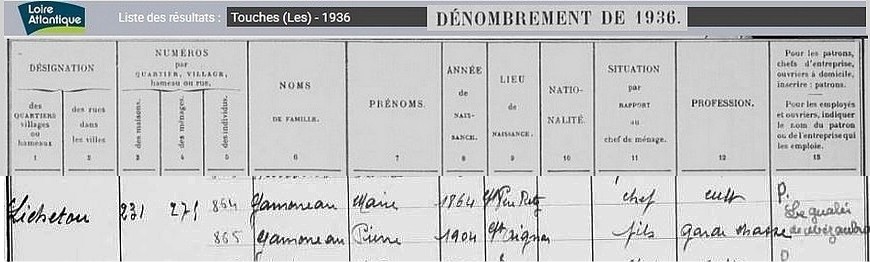 Loire
Atlantique
Liste des résultats : Touches (Les) - 1936
DÉNOMBREMENT DE 1936.
DÉSIGNATION
des QUARTIERS villages ou hameaux
1
des rues dans les villes
2
NUMÉROS
par QUARTIER, VILLAGE, hameau ou rue.
des maisons.
3
des ménages.
4
des individus.
5
NOMS
DE FAMILLE.
6
PRÉNOMS.
7
ANNÉE de NAIS- SANCE.
8
LIEU de NAISSANCE.
9
NATIO- NALITÉ.
10
SITUATION par RAPPORT au chef de ménage.
11
PROFESSION.
12
Pour les patrons, chefs d'entreprise, ouvriers à domicile, inscrire : patrons.
Pour les employés et ouvriers, indiquer le nom du patron ou de l'entreprise qui les emploie.
13
231 271 864 Marie 1864 chef cult P.
865 Pierre 1904 fils garde chasse